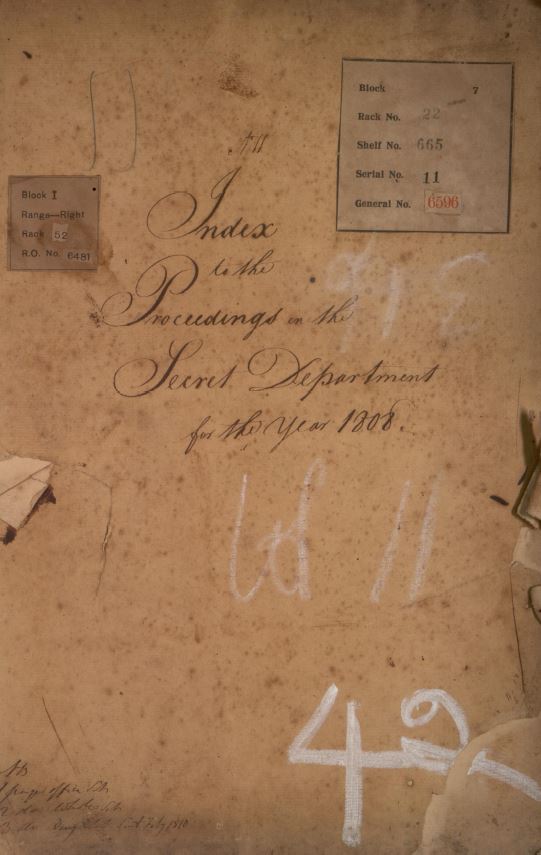 Block 7
Rack No. 22
Shelf No. 665
Serial No. 11
General No. 6596
Block I
Range—Right
Rack 52
R.O. No. 6481
Index
to the
Proceedings in the
Secret Department
for the Year 1808.
11
42